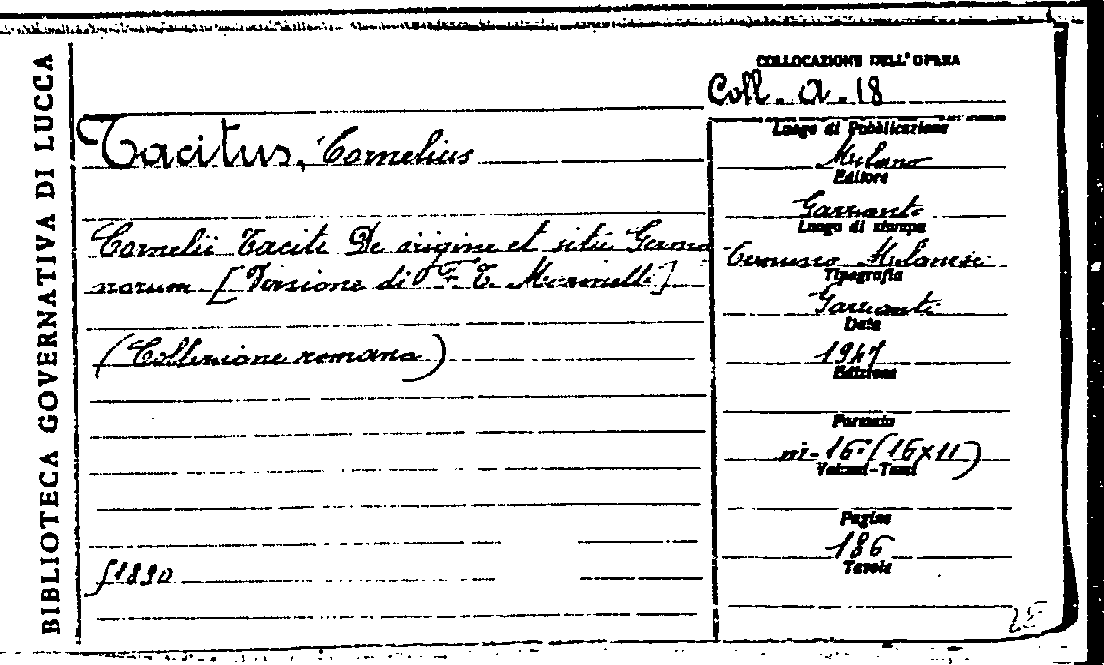 BIBLIOTECA GOVERNATIVA DI LUCCA
COLLOCAZIONE DELL'OPERA
Coll. A. 18
Tacitus, Cornelius
Cornelii Taciti De origine et situ Germa
norum [Versione di F. T. Marinetti]
(Collezione romana)
f1890
Luogo di Pubblicazione
Milano
Editore
Garzanti
Luogo di stampa
Cernusco Milanese
Tipografia
Garzanti
Data
1947
Edizione
Formato
in-16º (16x11)
Volumi-Tomi
Pagine
186
Tavole